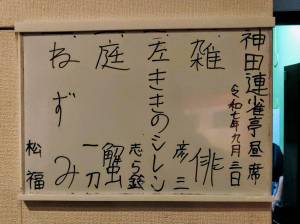 神田連雀亭昼席
令和七年九月三日
雑俳
彦三
左ききのシレン
志ら鈴
庭蟹
一刀
ねずみ
松福